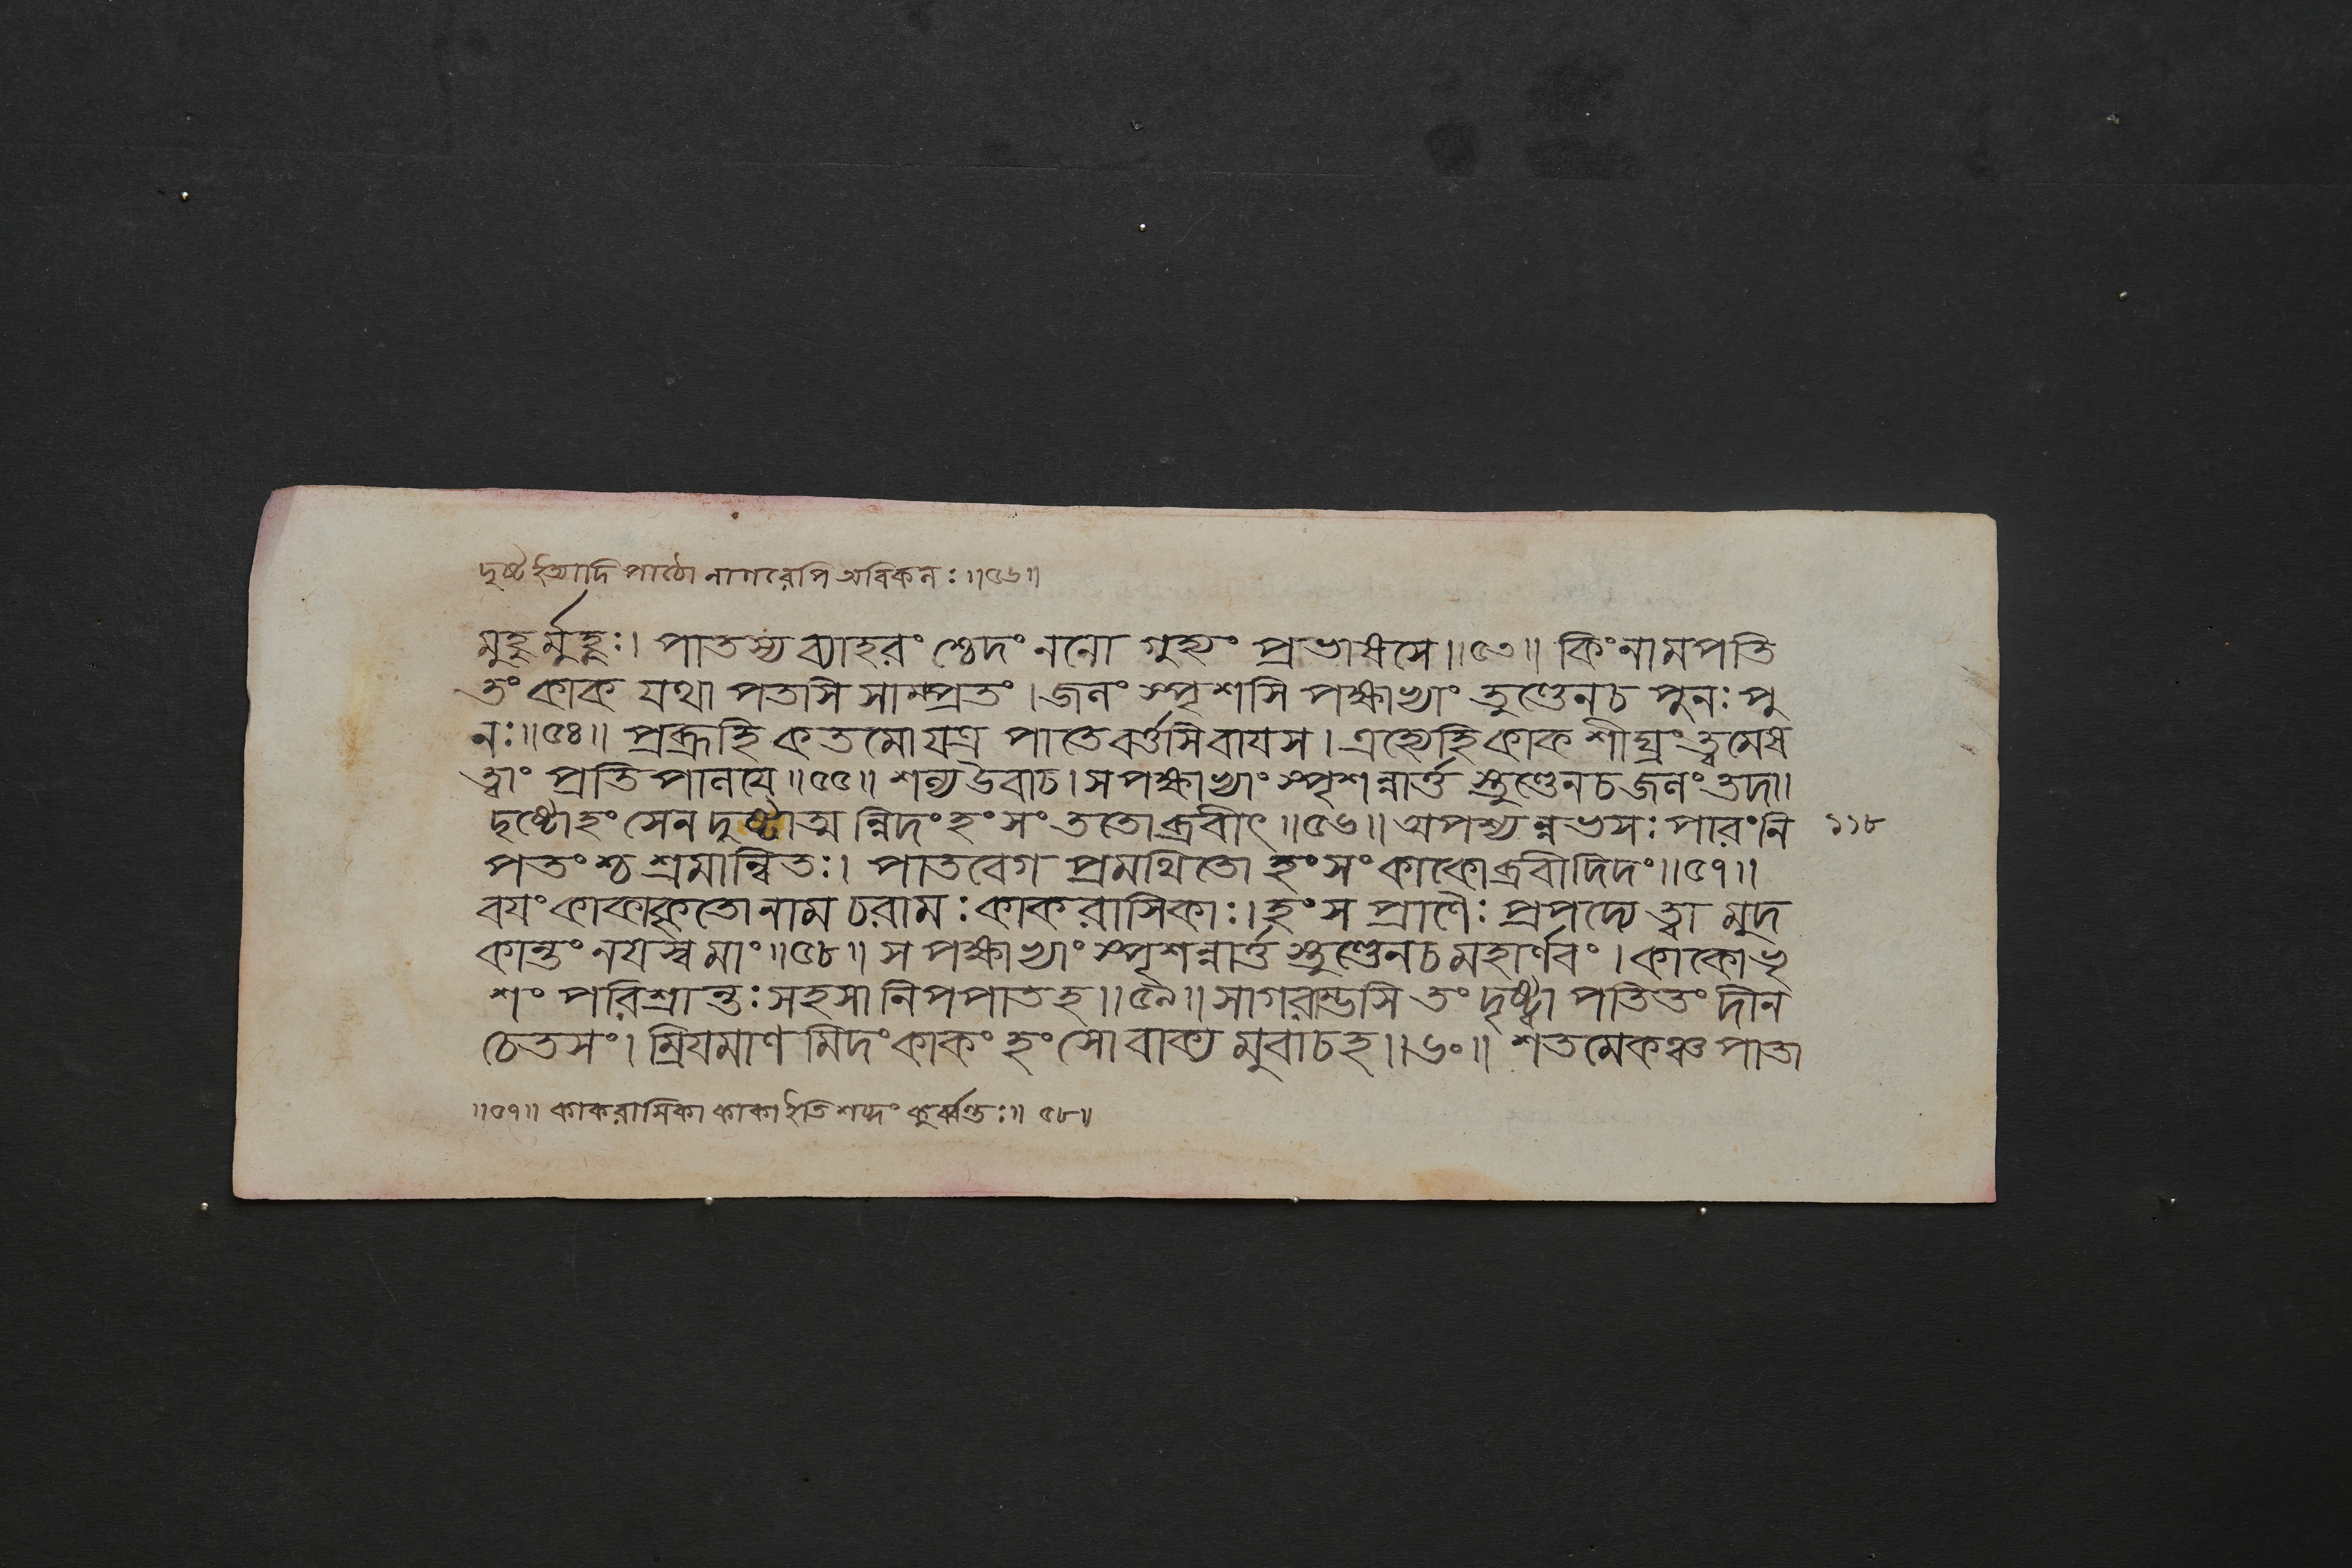 দুষ্ট ইত্যাদি পাঠো নাগরেপি অবিকলঃ ॥৫৬॥
মুহুর্মুহুঃ। পাতস্য ব্যাহরং শ্চেদং ননো গুহ্যং প্রভাষসে॥৫৩॥ কিংনামপতি
তং কাক যথা পতসি সাম্প্রতং। জলং স্পৃশসি পক্ষাভ্যাং তুণ্ডেনচ পুনঃ পু
নঃ॥৫৪॥ প্রব্রূহি কতমো যত্র পাতে বর্ত্তসি বায়স। এহ্যেহি কাক শীঘ্রং ত্বমেষ
ত্বাং প্রতিপালয়ে॥৫৫॥ শল্য উবাচ। স পক্ষাভ্যাং স্পৃশন্নার্ত্ত স্তুণ্ডেনচ জলং তদা।
দৃষ্টোহংসেন দুষ্টাত্ম ন্নিদং হংসং ততোব্রবীৎ॥৫৬॥ অপশ্য ন্নম্ভসঃ পারং নি
পতংশ্চ শ্রমান্বিতঃ। পাতবেগ প্রমথিতো হংসং কাকোব্রবীদিদং॥৫৭॥
বয়ং কাকাকুতো নাম চরামঃ কাকরাসিকাঃ। হংস প্রাণৈঃ প্রপদ্যে ত্বা মুদ
কান্তং নয়স্ব মাং॥৫৮॥ স পক্ষাভ্যাং স্পৃশন্নার্ত্ত স্তুণ্ডেনচ মহার্ণবং। কাকোভৃ
শং পরিশ্রান্তঃ সহসা নিপপাতহ॥৫৯॥ সাগরাম্ভসি তং দৃষ্ট্বা পতিতং দীন
চেতসং। ম্রিয়মাণ মিদং কাকং হংসো বাক্য মুবাচহ॥৬০॥ শতমেকঞ্চ পাতা
১১৮
॥৫৭॥ কাকরাসিকা কাকা ইতি শব্দং কুর্ব্বন্তঃ॥৫৮॥